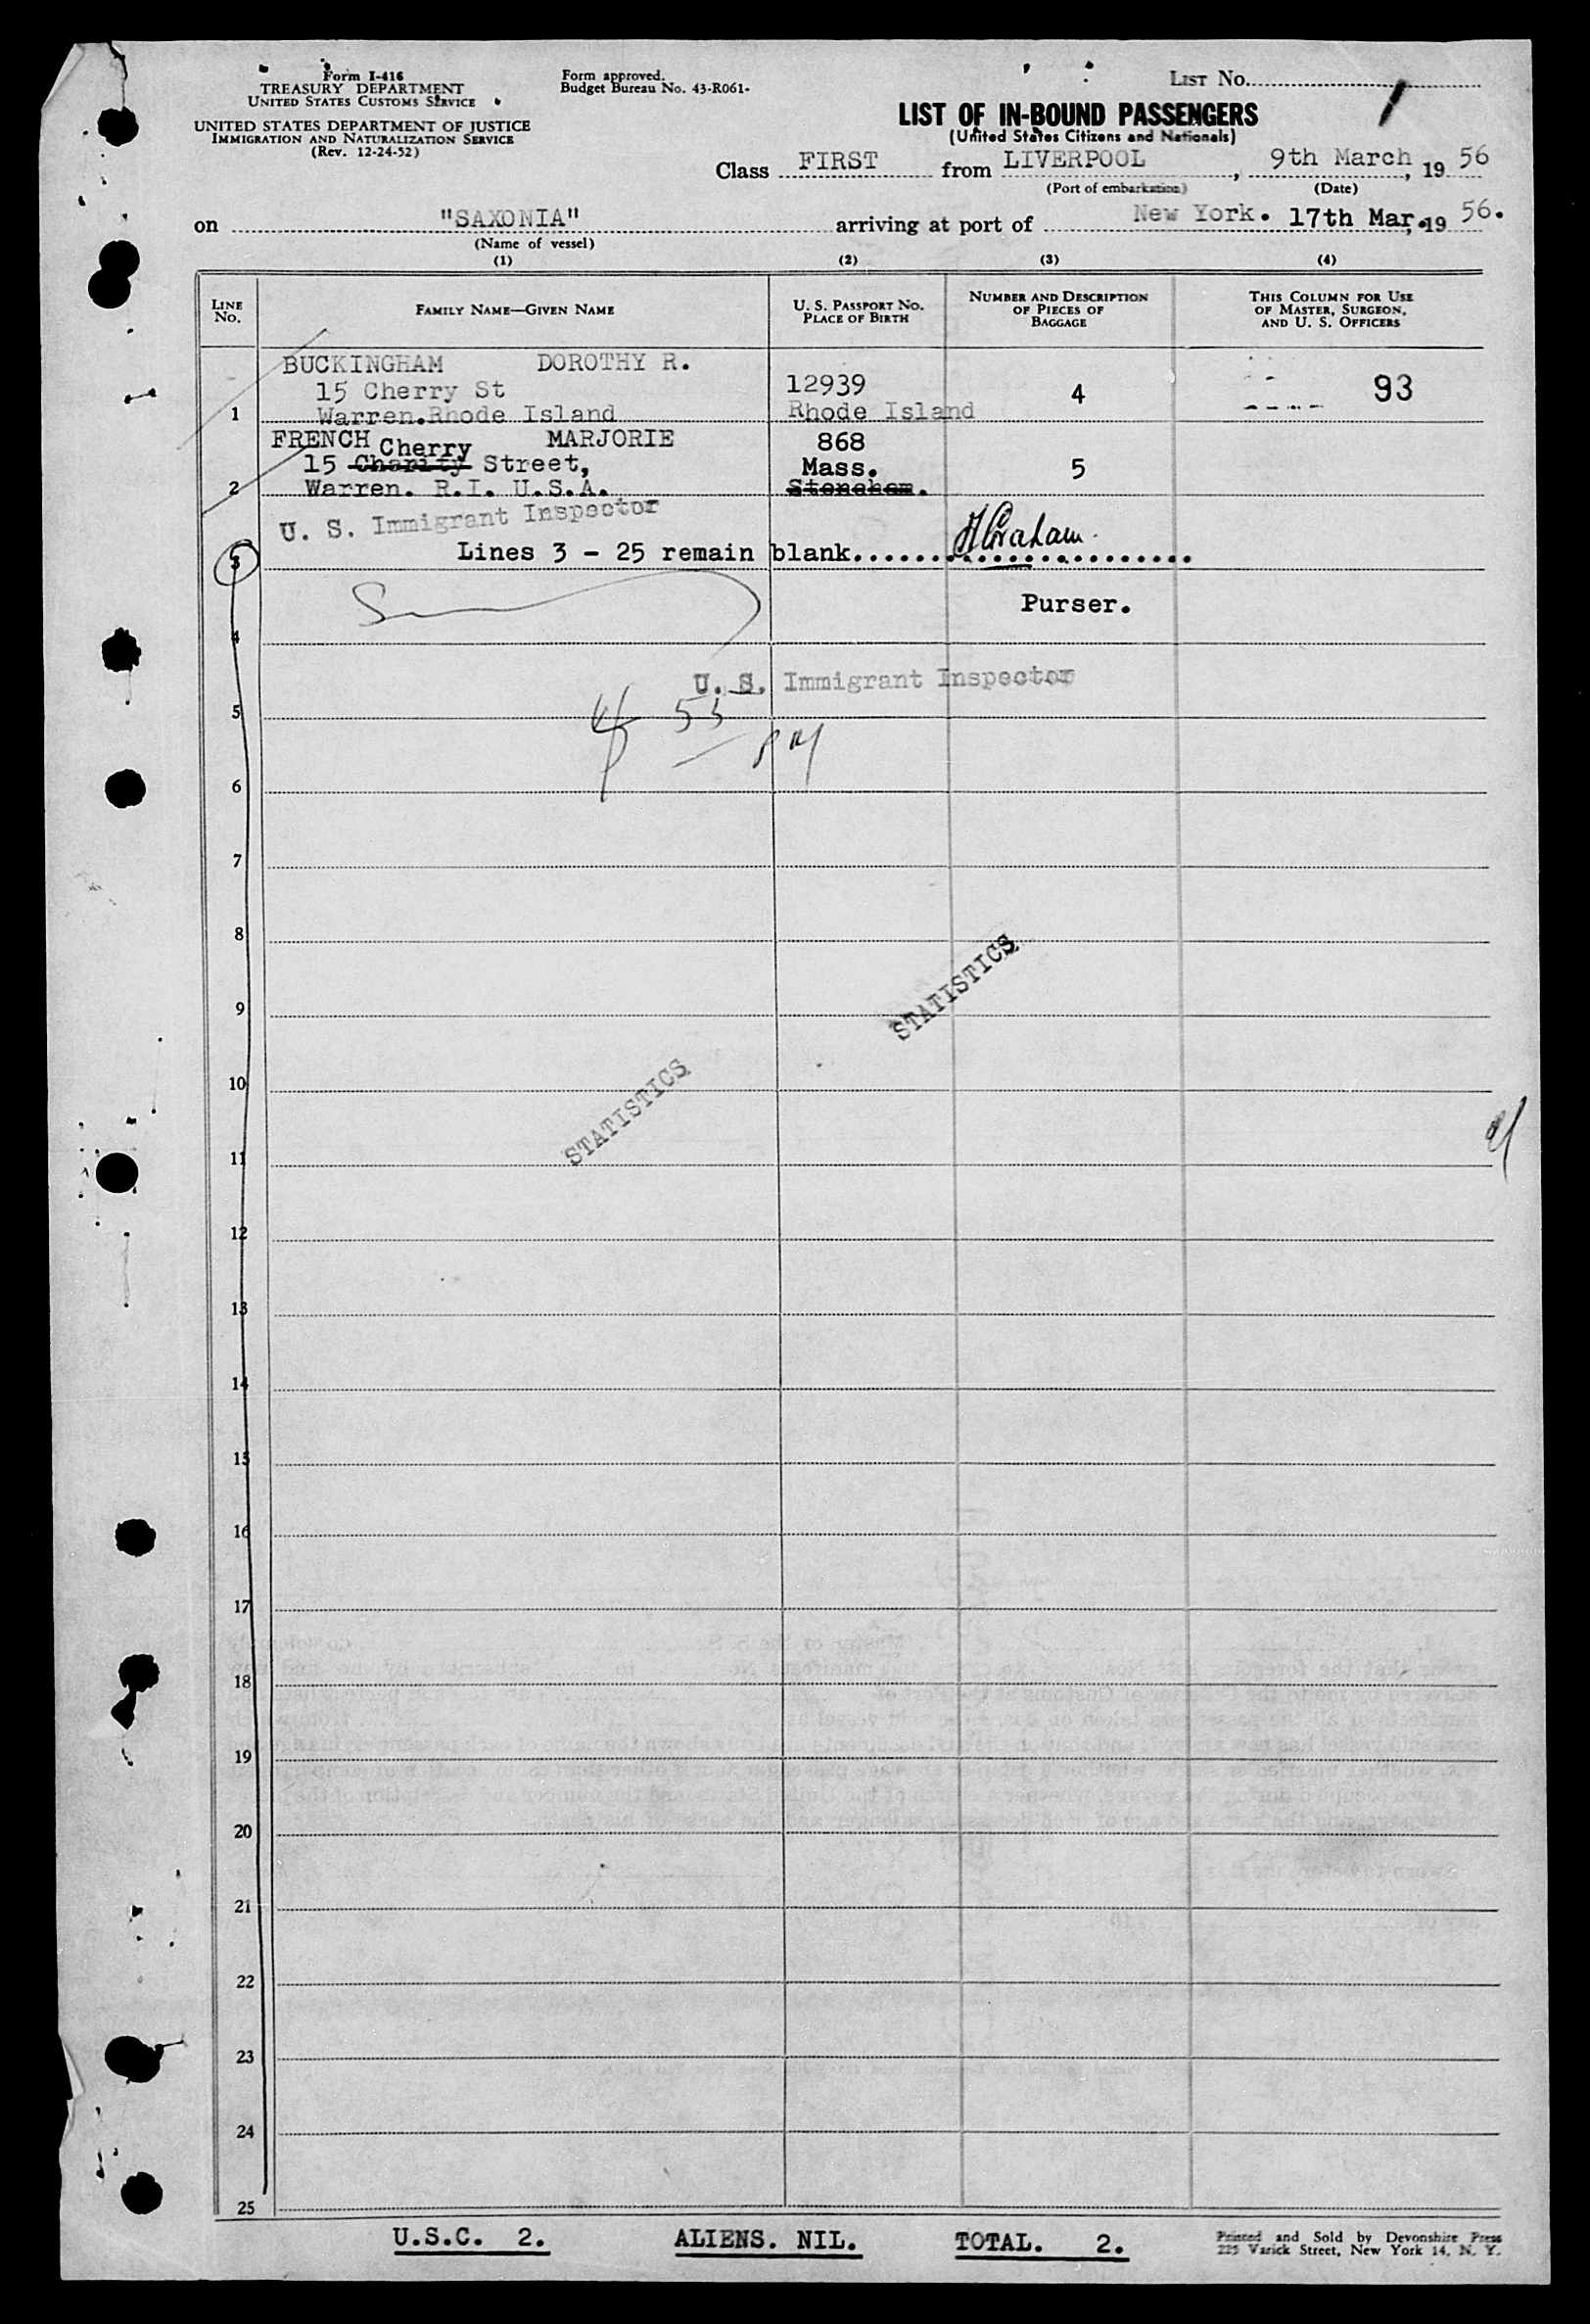 Form I-416
TREASURY DEPARTMENT
UNITED STATES CUSTOMS SERVICE
UNITED STATES DEPARTMENT OF JUSTICE
IMMIGRATION AND NATURALIZATION SERVICE
(Rev. 12-24-52)
Form approved.
Budget Bureau No. 43-R061-
LIST No.
LIST OF IN-BOUND PASSENGERS
(United States Citizens and Nationals)
Class FIRST from LIVERPOOL, 9th March, 1956
(Port of embarkation) (Date)
on "SAXONIA" arriving at port of New York. 17th Mar., 1956.
(Name of vessel)
(1) (2) (3) (4)
LINE No. FAMILY NAME—GIVEN NAME U. S. PASSPORT NO. PLACE OF BIRTH NUMBER AND DESCRIPTION OF PIECES OF BAGGAGE THIS COLUMN FOR USE OF MASTER, SURGEON, AND U. S. OFFICERS
BUCKINGHAM DOROTHY R.
15 Cherry St 12939 4 93
1 Warren.Rhode Island Rhode Island
FRENCH MARJORIE 868
Cherry
15 Charity Street, Mass. 5
2 Warren. R.I. U.S.A. Stoneham.
U. S. Immigrant Inspector
3 Lines 3 - 25 remain blank. HGraham.
Purser.
4
U. S. Immigrant Inspector
5 55
PM
6
7
8
STATISTICS
9
10
STATISTICS
11
12
13
14
15
16
17
18
19
20
21
22
23
24
25
U.S.C. 2. ALIENS. NIL. TOTAL. 2.
Printed and Sold by Devonshire Press
225 Varick Street, New York 14, N. Y.